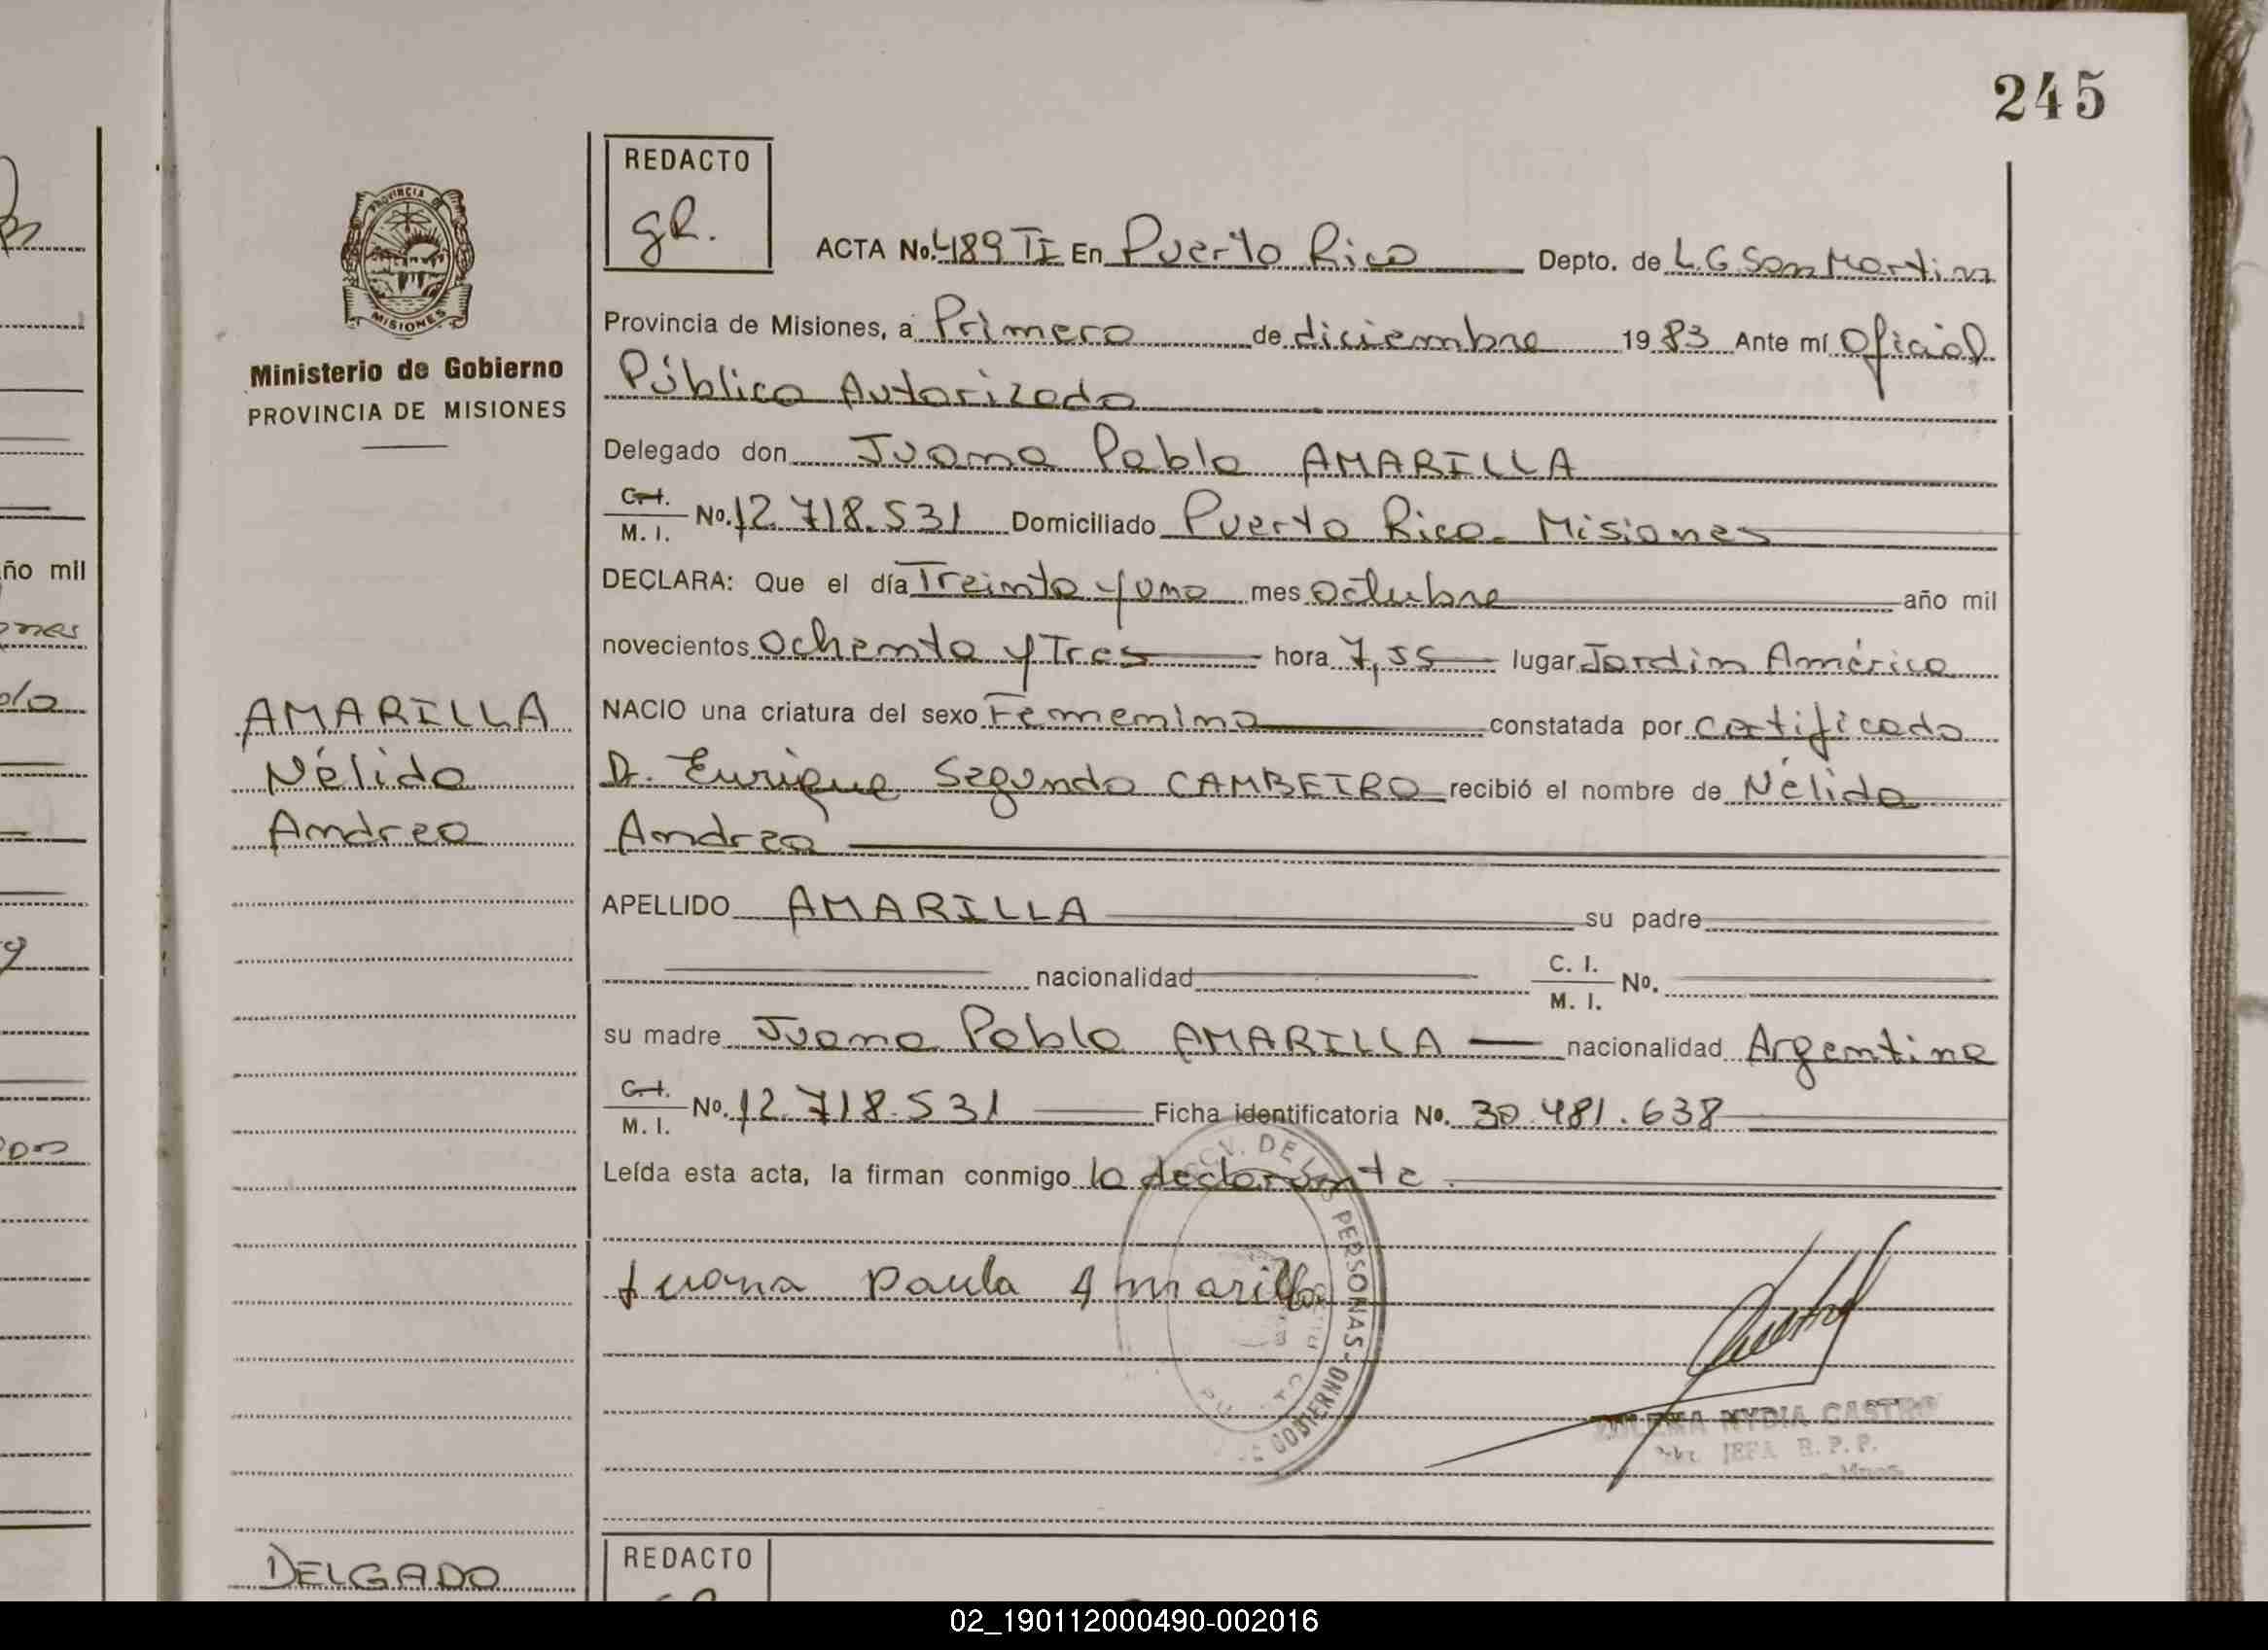 245
REDACTO
gR.
PROVINCIA DE
MISIONES
Ministerio de Gobierno
PROVINCIA DE MISIONES
ACTA No. 489 TI En Puerto Rico Depto. de L.G. San Martin
Provincia de Misiones, a Primero de diciembre 1983 Ante mí Oficial
Público Autorizado
Delegado don Juana Pabla AMARILLA
C. I. M. I. No. 12.718.531 Domiciliado Puerto Rico - Misiones
DECLARA: Que el día Treinta y uno mes octubre año mil
novecientos ochenta y Tres hora 7,55 lugar Jardin América
NACIO una criatura del sexo Femenino constatada por certificado
D. Enrique Segundo CAMBEIRO recibió el nombre de Nélida
Andrea
AMARILLA
Nélida
Andrea
APELLIDO AMARILLA su padre
nacionalidad C. I. M. I. No.
su madre Juana Pabla AMARILLA nacionalidad Argentina
C. I. M. I. No. 12.718.531 Ficha identificatoria No. 30.481.638
Leída esta acta, la firman conmigo la declarante.
DE LAS PERSONAS - GOBIERNO
Juana Paula Amarilla
NYDIA CASTRO
JEFA R.P.P.
DELGADO
REDACTO
ño mil
02_190112000490-002016